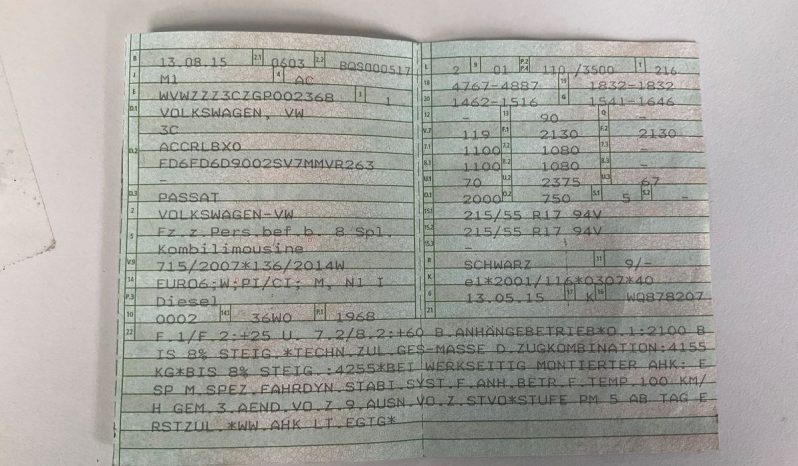 B 13.08.15 2.1 0603 2.2 BQS000517
J M1 4 AC
E WVWZZZ3CZGP002368 3 1
D.1 VOLKSWAGEN, VW
3C
D.2 ACCRLBX0
FD6FD6D9002SV7MMVR263
-
D.3 PASSAT
2 VOLKSWAGEN-VW
5 Fz.z.Pers.bef.b. 8 Spl.
Kombilimousine
V.9 715/2007*136/2014W
14 EURO6;W;PI/CI; M, N1 I
P.3 Diesel
10 0002 14.1 36W0 P.1 1968
L 2 9 01 P.2 P.4 110 /3500 T 216
18 4767-4887 19 1832-1832
20 1462-1516 G 1541-1646
12 - 13 90 Q -
V.7 119 F.1 2130 F.2 2130
7.1 1100 7.2 1080 7.3 -
8.1 1100 8.2 1080 8.3 -
U.1 70 U.2 2375 U.3 67
O.1 2000 O.2 750 S.1 5 S.2 -
15.1 215/55 R17 94V
15.2 215/55 R17 94V
15.3 -
R SCHWARZ 11 9/-
K e1*2001/116*0307*40
6 13.05.15 17 K 16 WQ878207
21
22 F.1/F.2:+25 U. 7.2/8.2:+60 B.ANHÄNGEBETRIEB*O.1:2100 B
IS 8% STEIG.*TECHN.ZUL.GES-MASSE D.ZUGKOMBINATION:4155
KG*BIS 8% STEIG.:4255*BEI WERKSEITIG MONTIERTER AHK: E
SP M.SPEZ.FAHRDYN.STABI.SYST.F.ANH.BETR.F.TEMP.100 KM/
H GEM.3.AEND.VO.Z.9.AUSN.VO.Z.STVO*STUFE PM 5 AB TAG E
RSTZUL.*WW.AHK LT.EGTG*